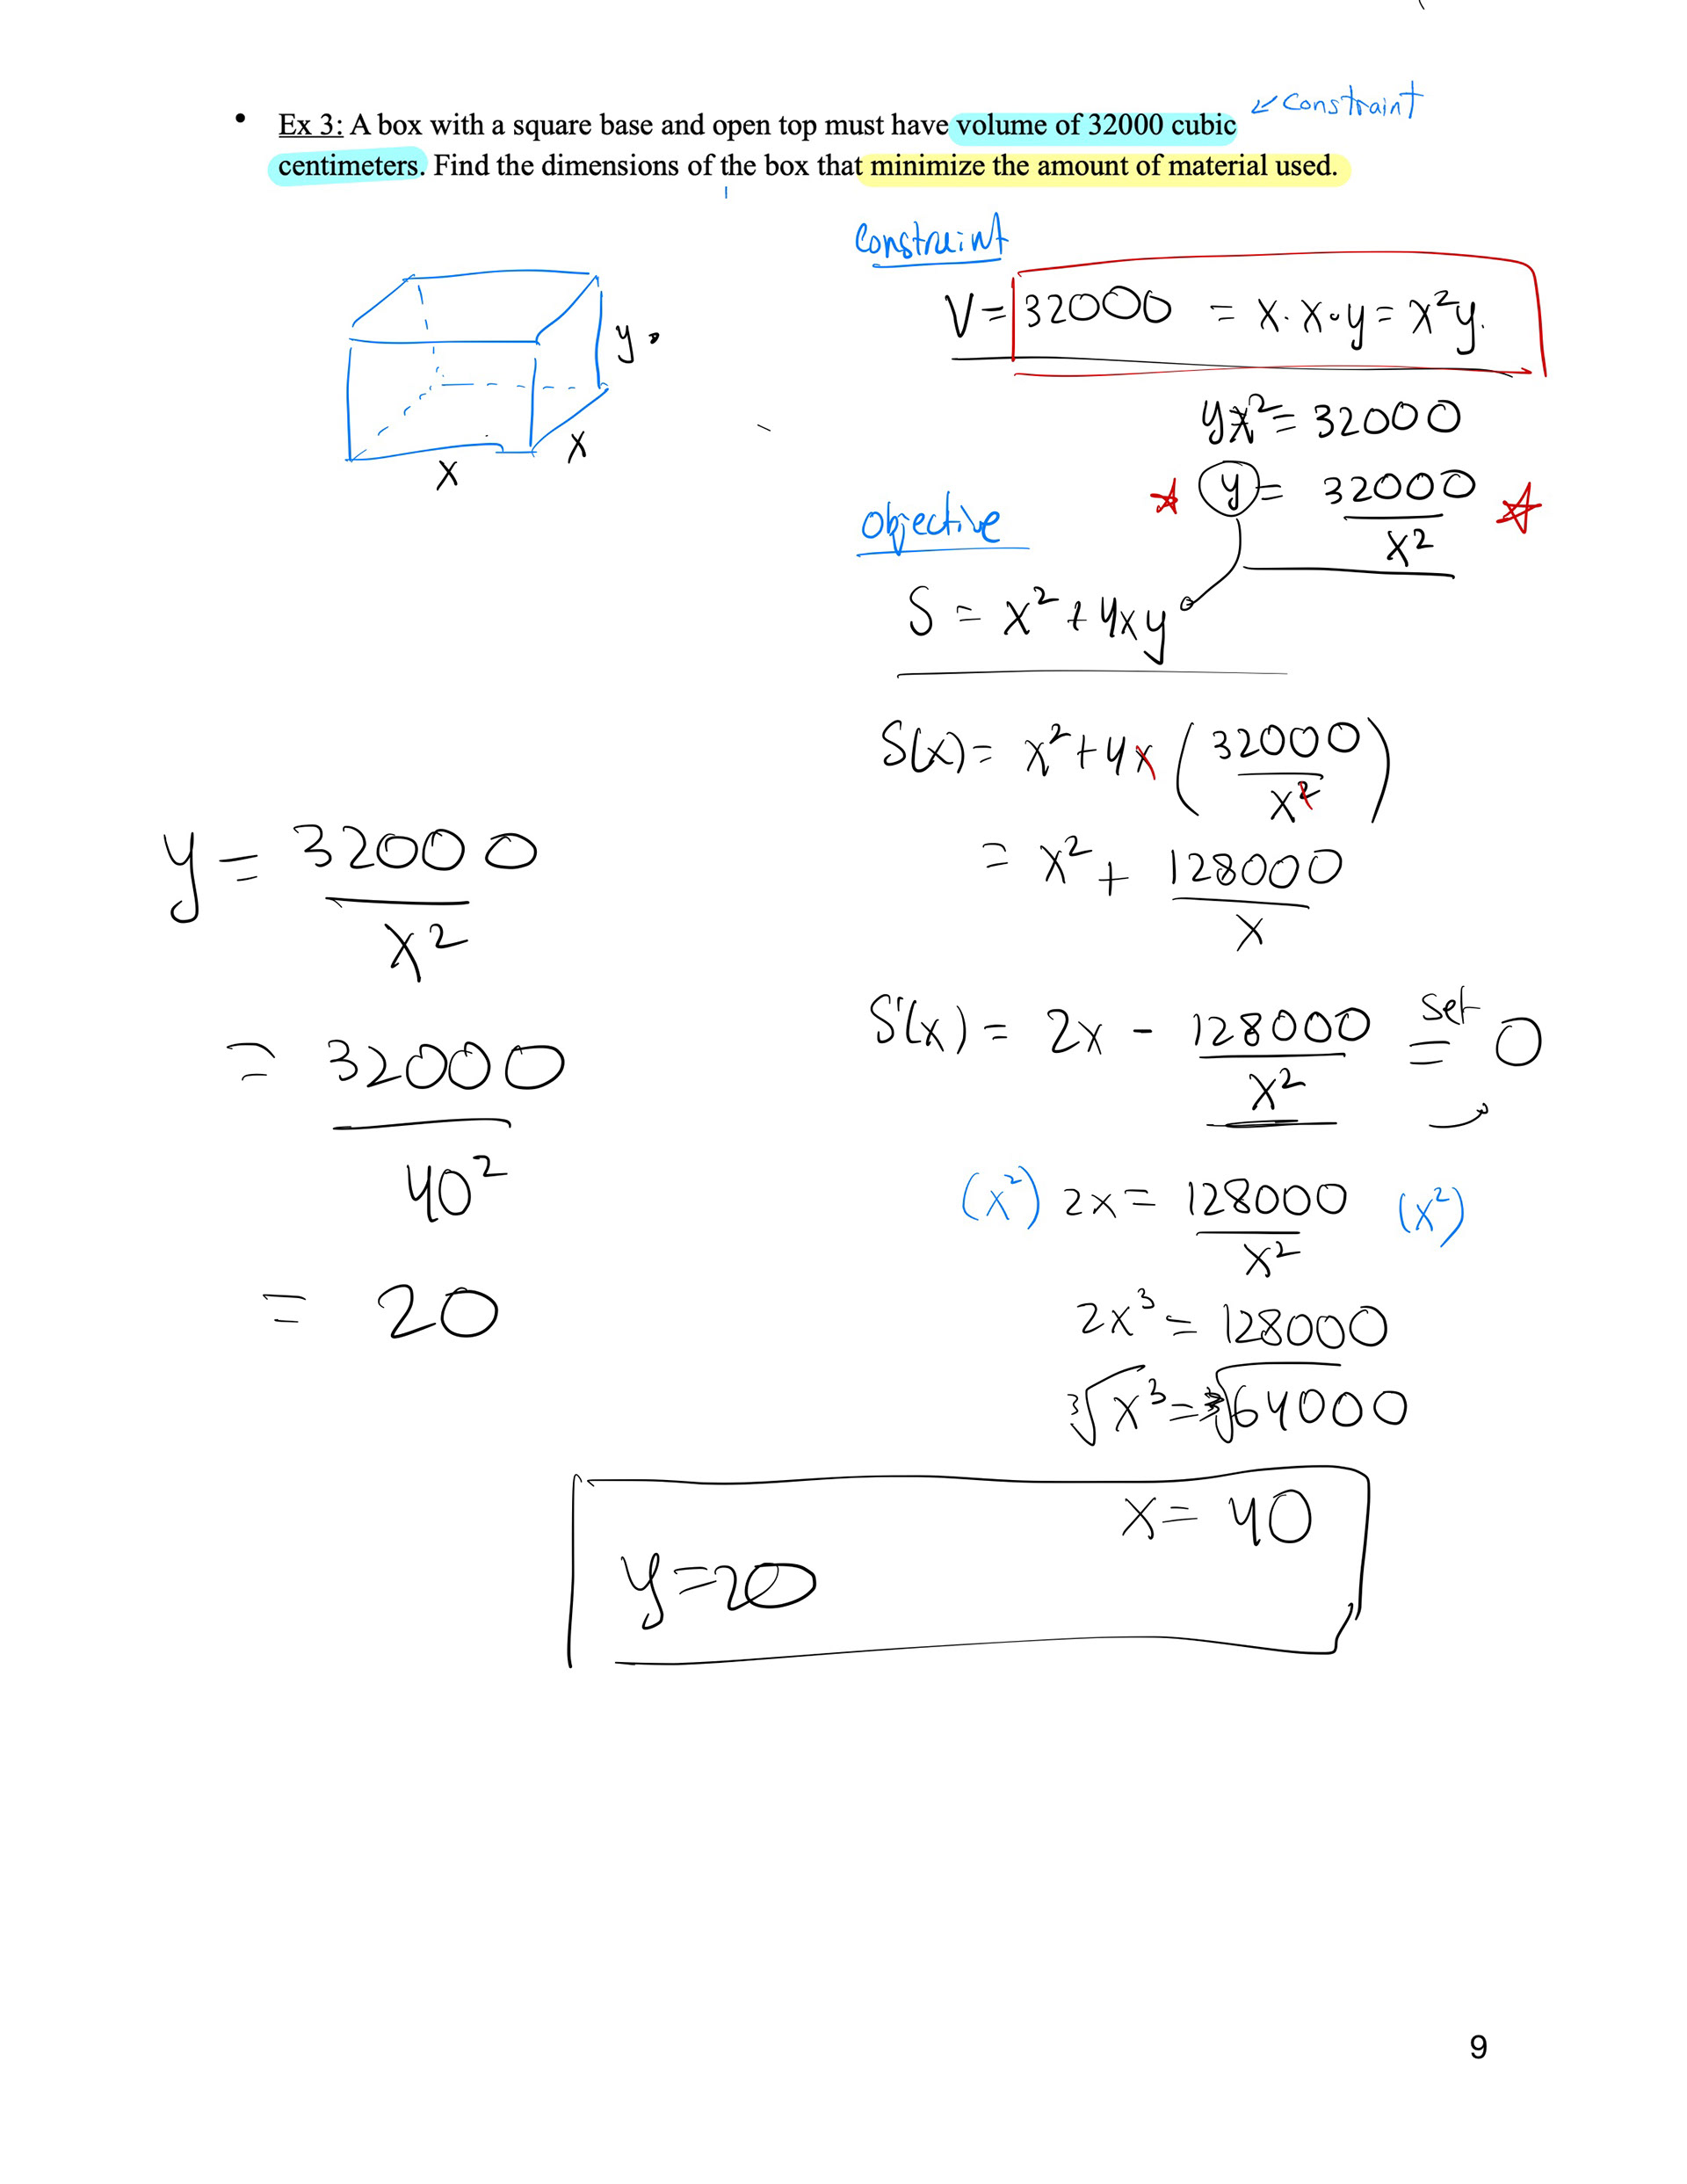 • Ex 3: A box with a square base and open top must have volume of 32000 cubic ↙ constraint
centimeters. Find the dimensions of the box that minimize the amount of material used.
constraint
V = 32000 = x · x · y = x²y.
y
x
x
yx² = 32000
y = 32000/x²
objective
S = x² + 4xy
S(x) = x² + 4x (32000/x²)
= x² + 128000/x
S'(x) = 2x - 128000/x² set = 0
(x²) 2x = 128000/x² (x²)
2x³ = 128000
∛x³ = ∛64000
x = 40
y = 32000/x²
= 32000/40²
= 20
y = 20
9